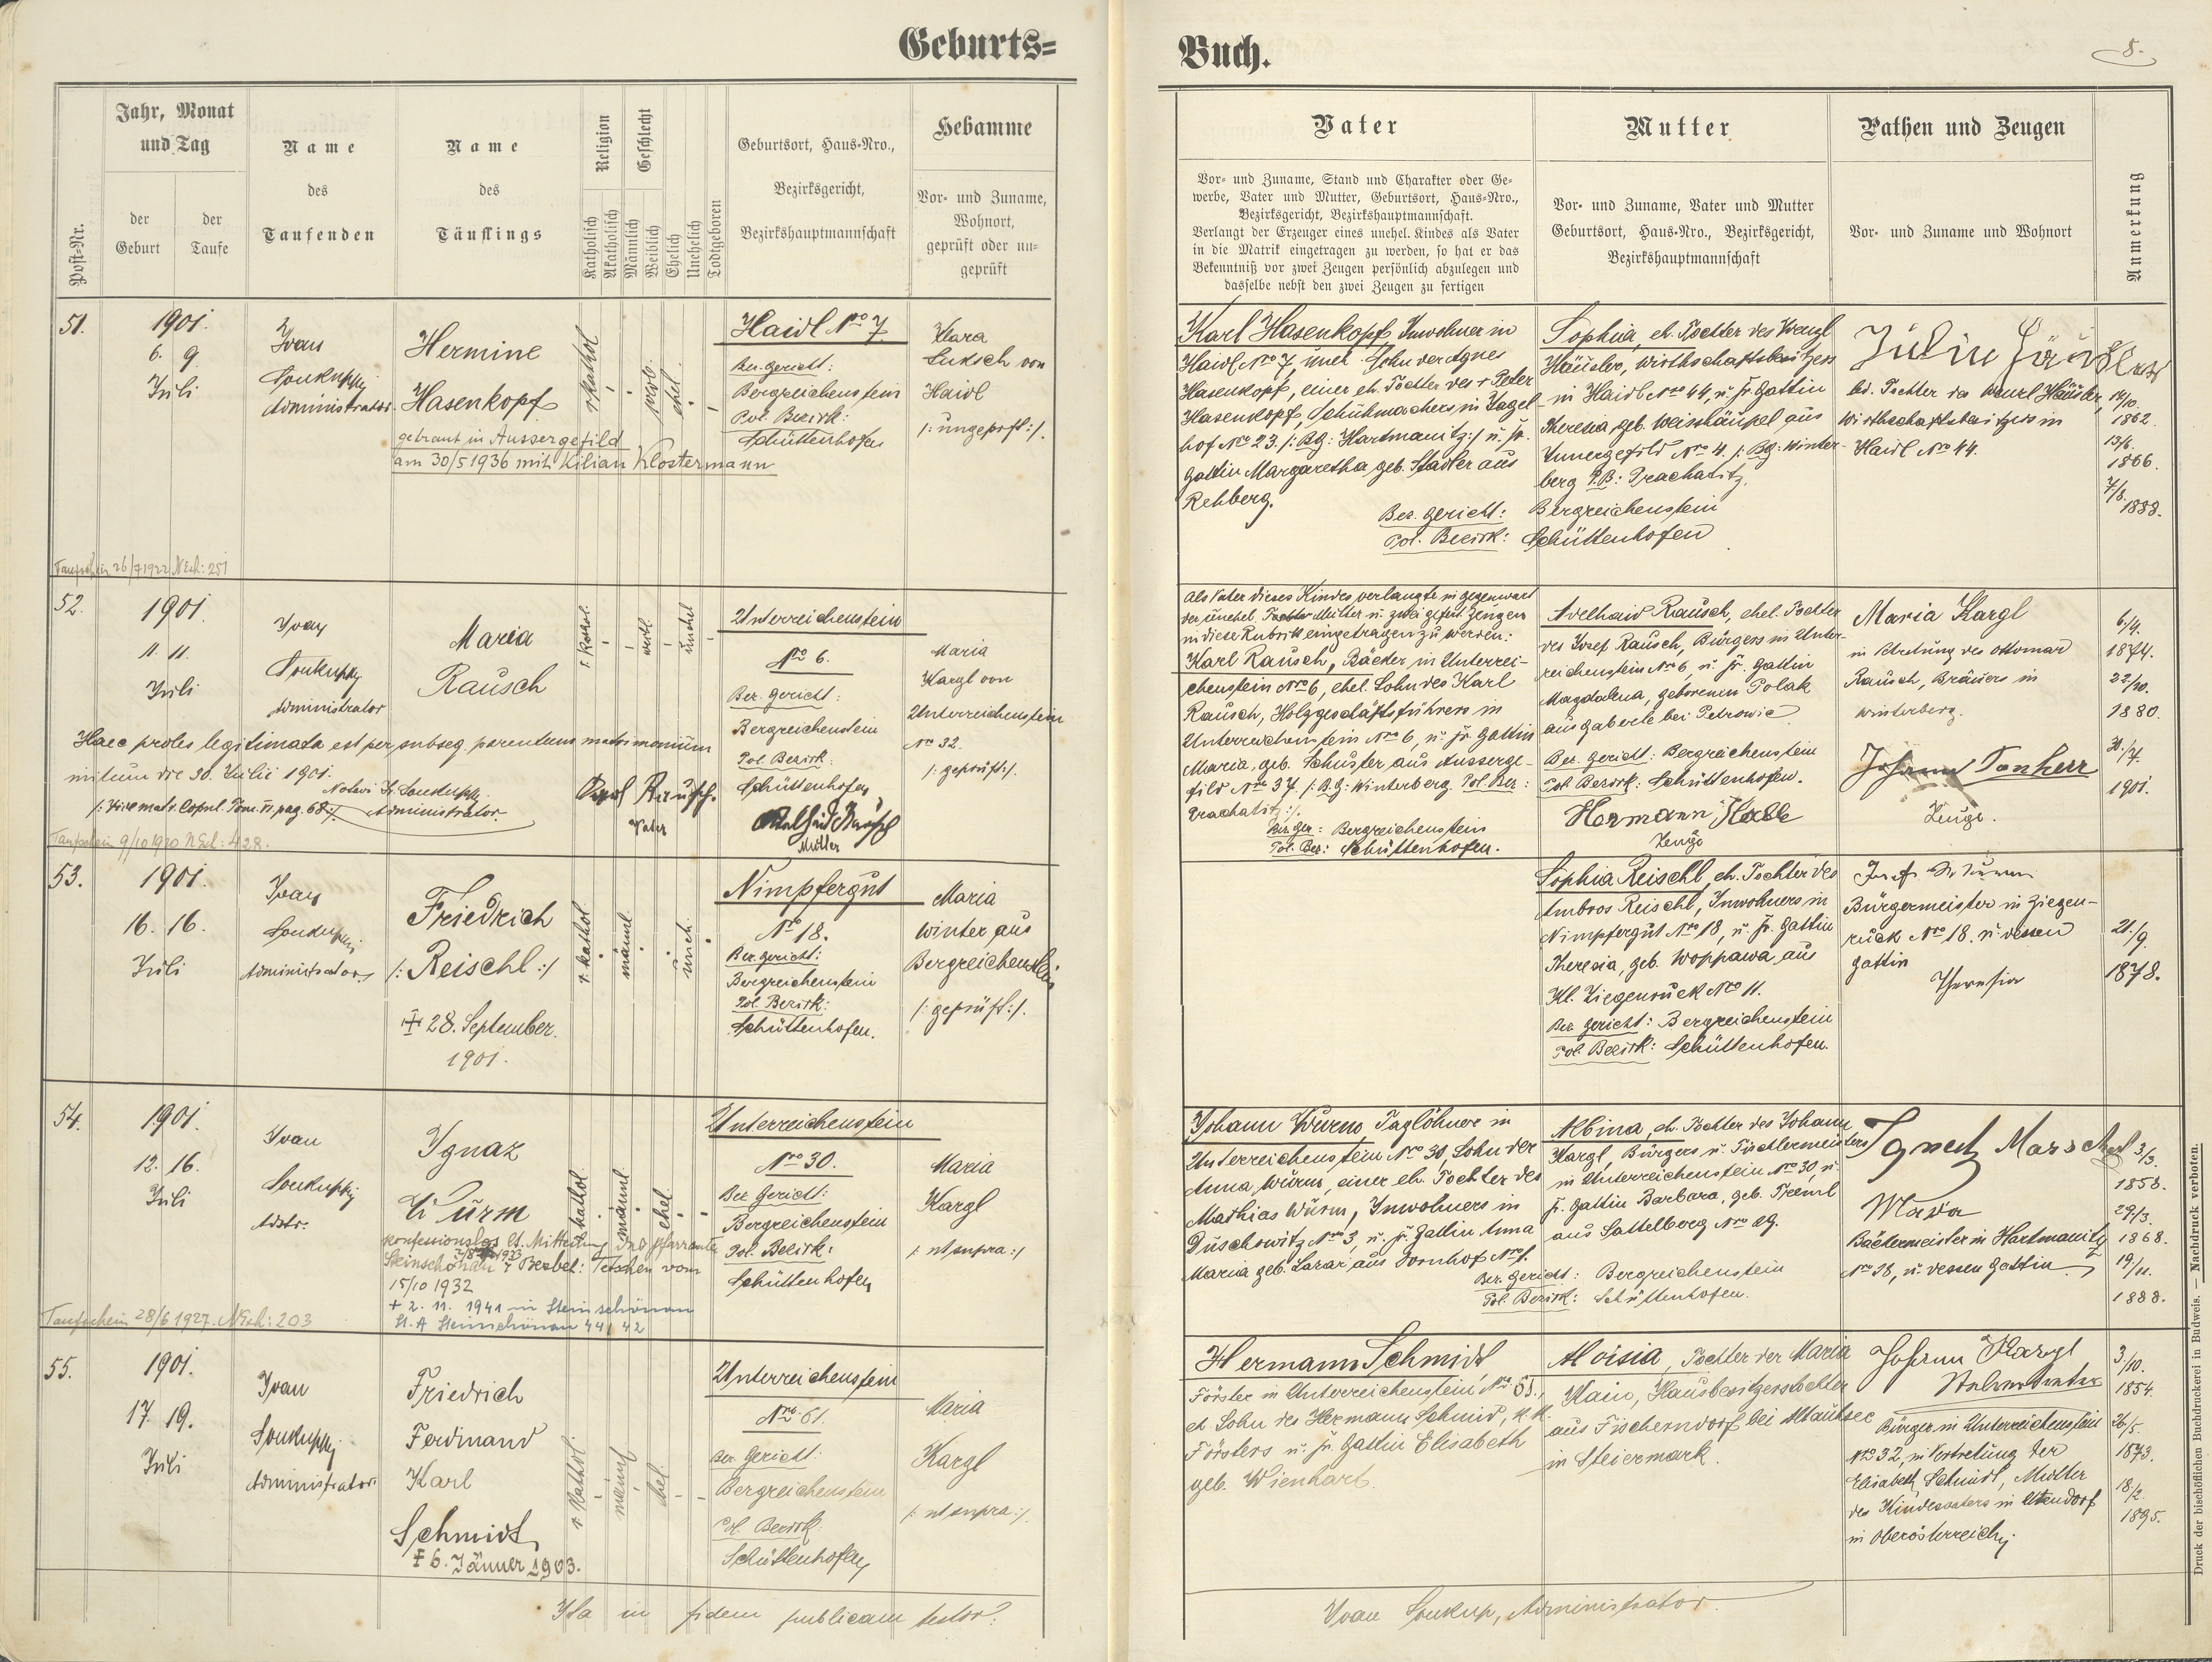 Geburts=
Buch.
8.
Post-Nr.
Jahr, Monat
und Tag
der
Geburt
der
Taufe
Name
des
Taufenden
Name
des
Täuflings
Religion
Katholisch
Akatholisch
Geschlecht
Männlich
Weiblich
Ehelich
Unehelich
Todtgeboren
Geburtsort, Haus-Nro.,
Bezirksgericht,
Bezirkshauptmannschaft
Hebamme
Vor- und Zuname,
Wohnort,
geprüft oder un-
geprüft
Vater
Vor- und Zuname, Stand und Charakter oder Ge-
werbe, Vater und Mutter, Geburtsort, Haus-Nro.,
Bezirksgericht, Bezirkshauptmannschaft.
Verlangt der Erzeuger eines unehel. Kindes als Vater
in die Matrik eingetragen zu werden, so hat er das
Bekenntniß vor zwei Zeugen persönlich abzulegen und
dasselbe nebst den zwei Zeugen zu fertigen
Mutter
Vor- und Zuname, Vater und Mutter
Geburtsort, Haus-Nro., Bezirksgericht,
Bezirkshauptmannschaft
Pathen und Zeugen
Vor- und Zuname und Wohnort
Anmerkung
51.
1901.
6. 9.
Juli
Ivan
Soukupky
Administrator
Hermine
Hasenkopf
getraut in Aussergefild
am 30/5 1936 mit Kilian Klostermann
r. kathol
weib.
ehel.
Haidl Nro 7.
Bez. gericht:
Bergreichenstein
Pol. Bezirk:
Schüttenhofen
Klara
Luksch von
Haidl
/: ungeprft :/.
Taufschein 26/7 1922 NExh: 251
Karl Hasenkopf, Inwohner in
Haidl Nro 7, uneh. Sohn der Agnes
Hasenkopf, einer eh. Tochter des + Peter
Hasenkopf, Schuhmachers in Vogel-
hof Nro 23. /: BG: Hartmanitz :/ u. fr.
Gattin Margaretha geb. Stadler aus
Rehberg.
Bez. gericht:
Pol. Bezirk:
Sophia, eh. Tochter des Wenzl
Häusler, Wirthschaftsbesitzers
in Haidl Nro 44, u. fr. Gattin
Theresia, geb. Weisshäupel aus
Innergefild Nro 4. /: BG: Winter-
berg P.B: Prachatitz.
Bergreichenstein
Schüttenhofen
led. Tochter des Wenzl Häusler,
Wirthschaftsbesitzers in
Haidl Nro 44.
14/10.
1862
13/6.
1866.
7/8.
1888.
52.
1901.
11. 11.
Juli
Ivan
Soukupky
Administrator
Maria
Rausch
r. kathol.
weibl
unehel
Unterreichenstein
Nro 6.
Bez. gericht:
Bergreichenstein
Pol. Bezirk:
Schüttenhofen
Maria
Kargl von
Unterreichenstein
Nro 32.
/: geprüft :/.
Haec proles legitimata est per subseq. parentum matrimonium
initum die 30. Julii 1901.
/: Vide matr. Copul. Tom. VI pag. 68 :/
Administrator.
Karl Rausch.
Vater
Adelheid Rausch
Mutter
Taufschein 9/10 1920 NExh: 428.
Als Vater dieses Kindes verlangte in gegenwart
der unehel. Tochter Mutter u. zwei gefert. Zeugen
in diese Rubrik eingetragen zu werden:
Karl Rausch, Bäcker in Unterrei-
chenstein Nro 6, ehel. Sohn des Karl
Rausch, Holzgeschäftsführers in
Unterreichenstein Nro 6, u. fr. Gattin
Maria, geb. Schuster aus Ausserge-
fild Nro 37. /: B.G: Winterberg Pol. Bez:
Prachatitz :/.
Bez. ger: Bergreichenstein
Pol. Bez: Schüttenhofen.
Adelhaid Rausch, ehel. Tochter
des Josef Rausch, Bürgers in Unter-
reichenstein Nro 6, u. fr. Gattin
Magdalena, geborenen Polak
aus Gaberle bei Petrowic
Bez. gericht: Bergreichenstein
Pol. Bezirk: Schüttenhofen.
Zeuge
Maria Kargl
in Vertretung des Ottomar
Rausch, Bräuers in
Winterberg.
Johann Tonherr
Zeuge.
6/4.
1874.
22/10.
1880.
30./7.
1901.
53.
1901.
16. 16.
Juli
Ivan
Soukupky
Administrator
Friedrich
/: Reischl :/
28. September
1901.
r. kathol
männl.
uneh.
Nimpfergut
Nro 18.
Bez. gericht:
Bergreichenstein
Pol. Bezirk:
Schüttenhofen.
Maria
Winter aus
Bergreichenstein
/: geprüft :/.
Sophia Reischl, eh. Tochter des
Ambros Reischl, Inwohners in
Nimpfergut Nro 18, u. fr. Gattin
Theresia, geb. Woppawa aus
Kl. Ziegenruck Nro 11.
Bez. gericht: Bergreichenstein
Pol. Bezirk: Schüttenhofen.
Bürgermeister in Ziegen-
ruck Nro 18. u. dessen
Gattin
Theresia
21./9.
1878.
54.
1901.
12. 16.
Juli
Ivan
Soukupky
Adstr.
Ignaz
Würm
konfessionslos lt. Mitteilung des Pfarramtes
Steinschönau
15/10 1932
+ 2. 11. 1941 in Steinschönau
St. A Steinschönau 44/42
r. kathol.
männl.
ehel.
Unterreichenstein
Nro 30.
Bez. Gericht:
Bergreichenstein
Pol. Bezirk:
Schüttenhofen
Maria
Kargl
/: ut supra :/
Taufschein 28/6 1927. NExh: 203
Johann Würm Taglöhner in
Unterreichenstein Nro 30, Sohn der
Anna Würm, einer eh. Tochter des
Mathias Würm, Inwohners in
Duschowitz Nro 3, u. fr. Gattin Anna
Maria geb. Lazar, aus Dornhof Nro 1.
Bez. gericht: Bergreichenstein
Pol. Bezirk: Schüttenhofen.
Albina, eh. Tochter des Johann
Kargl Bürgers u. Tischlermeisters
in Unterreichenstein Nro 30, u.
fr. Gattin Barbara, geb. Treml
aus Sattelberg Nro 19.
Ignatz Marschal
Maria
Bäckermeister in Hartmanitz
Nro 38, u. dessen Gattin
3/3.
1858.
29/3.
1868.
19/11.
1888.
55.
1901.
17. 19.
Juli
Ivan
Soukupky
Administrator
Friedrich
Ferdinand
Karl
Schmidt
6. Jänner 1903.
r. kathol.
männl
ehel.
Unterreichenstein
Nro 61.
Bez. Gericht:
Bergreichenstein
Pol. Bezirk:
Schüttenhofen
Maria
Kargl
/: ut supra :/.
Hermann Schmidt
Förster in Unterreichenstein, Nro 61.,
eh. Sohn des Hermann Schmid, k.k.
Försters u. fr. Gattin Elisabeth
geb. Wienhart.
Aloisia, Tochter der Maria
Kain, Hausbesitzerstochter
aus Fischerndorf bei Altausee
in Steiermark.
Johann Kargl
Bürger in Unterreichenstein
Nro 32, in Vertretung der
Elisabeth Schmidt, Mutter
des Kindesvaters in
in Oberösterreich.
3/10.
1854.
26/5.
1873.
18/2.
1895.
Ita in fidem publicam testor:
Ivan Soukup, Administrator.
Druck der bischöflichen Buchdruckerei in Budweis. — Nachdruck verboten.